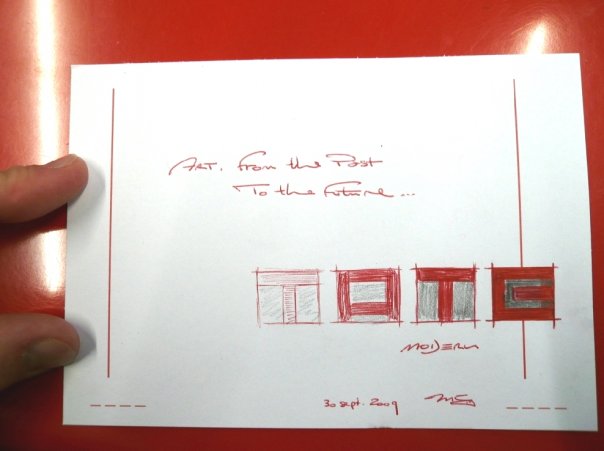 ART. From the Past
To the Future...
TATE
MODERN
30 sept. 2009